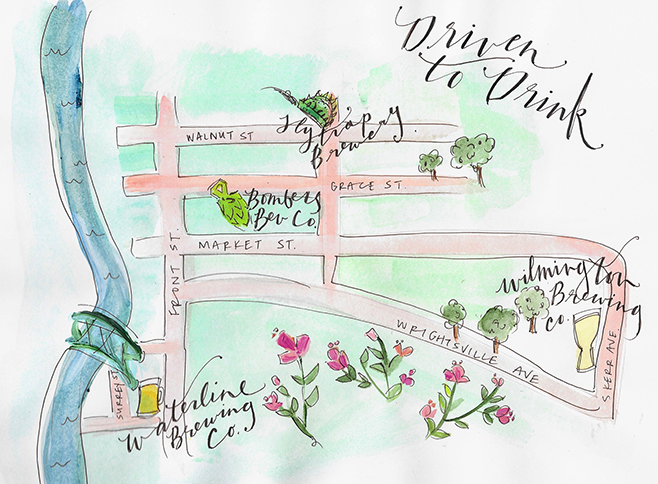 Driven
to Drink
Flytrap
Brewery
WALNUT ST
GRACE ST.
Bombers
Bev Co.
MARKET ST.
FRONT ST.
Wilmington
Brewing
Co.
WRIGHTSVILLE AVE
S KERR AVE.
SURREY ST
Waterline
Brewing
Co.